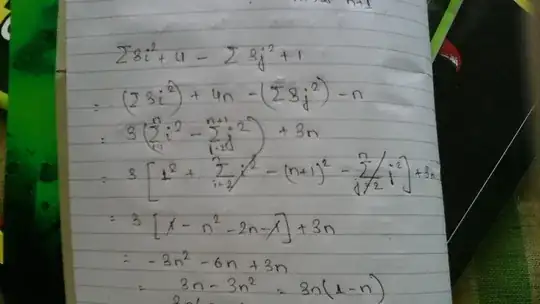 n+1
Σ3i² + 4 - Σ3j² + 1
= (Σ3i²) + 4n - (Σ3j²) - n
= 3(Σⁿᵢ₌₁ i² - Σⁿ⁺¹ⱼ₌₂ j²) + 3n
= 3[1² + Σⁿᵢ₌₂ i² - (n+1)² - Σⁿⱼ₌₂ j²] + 3n
= 3[1 - n² - 2n - 1] + 3n
= -3n² - 6n + 3n
= 3n - 3n² = 3n(1-n)